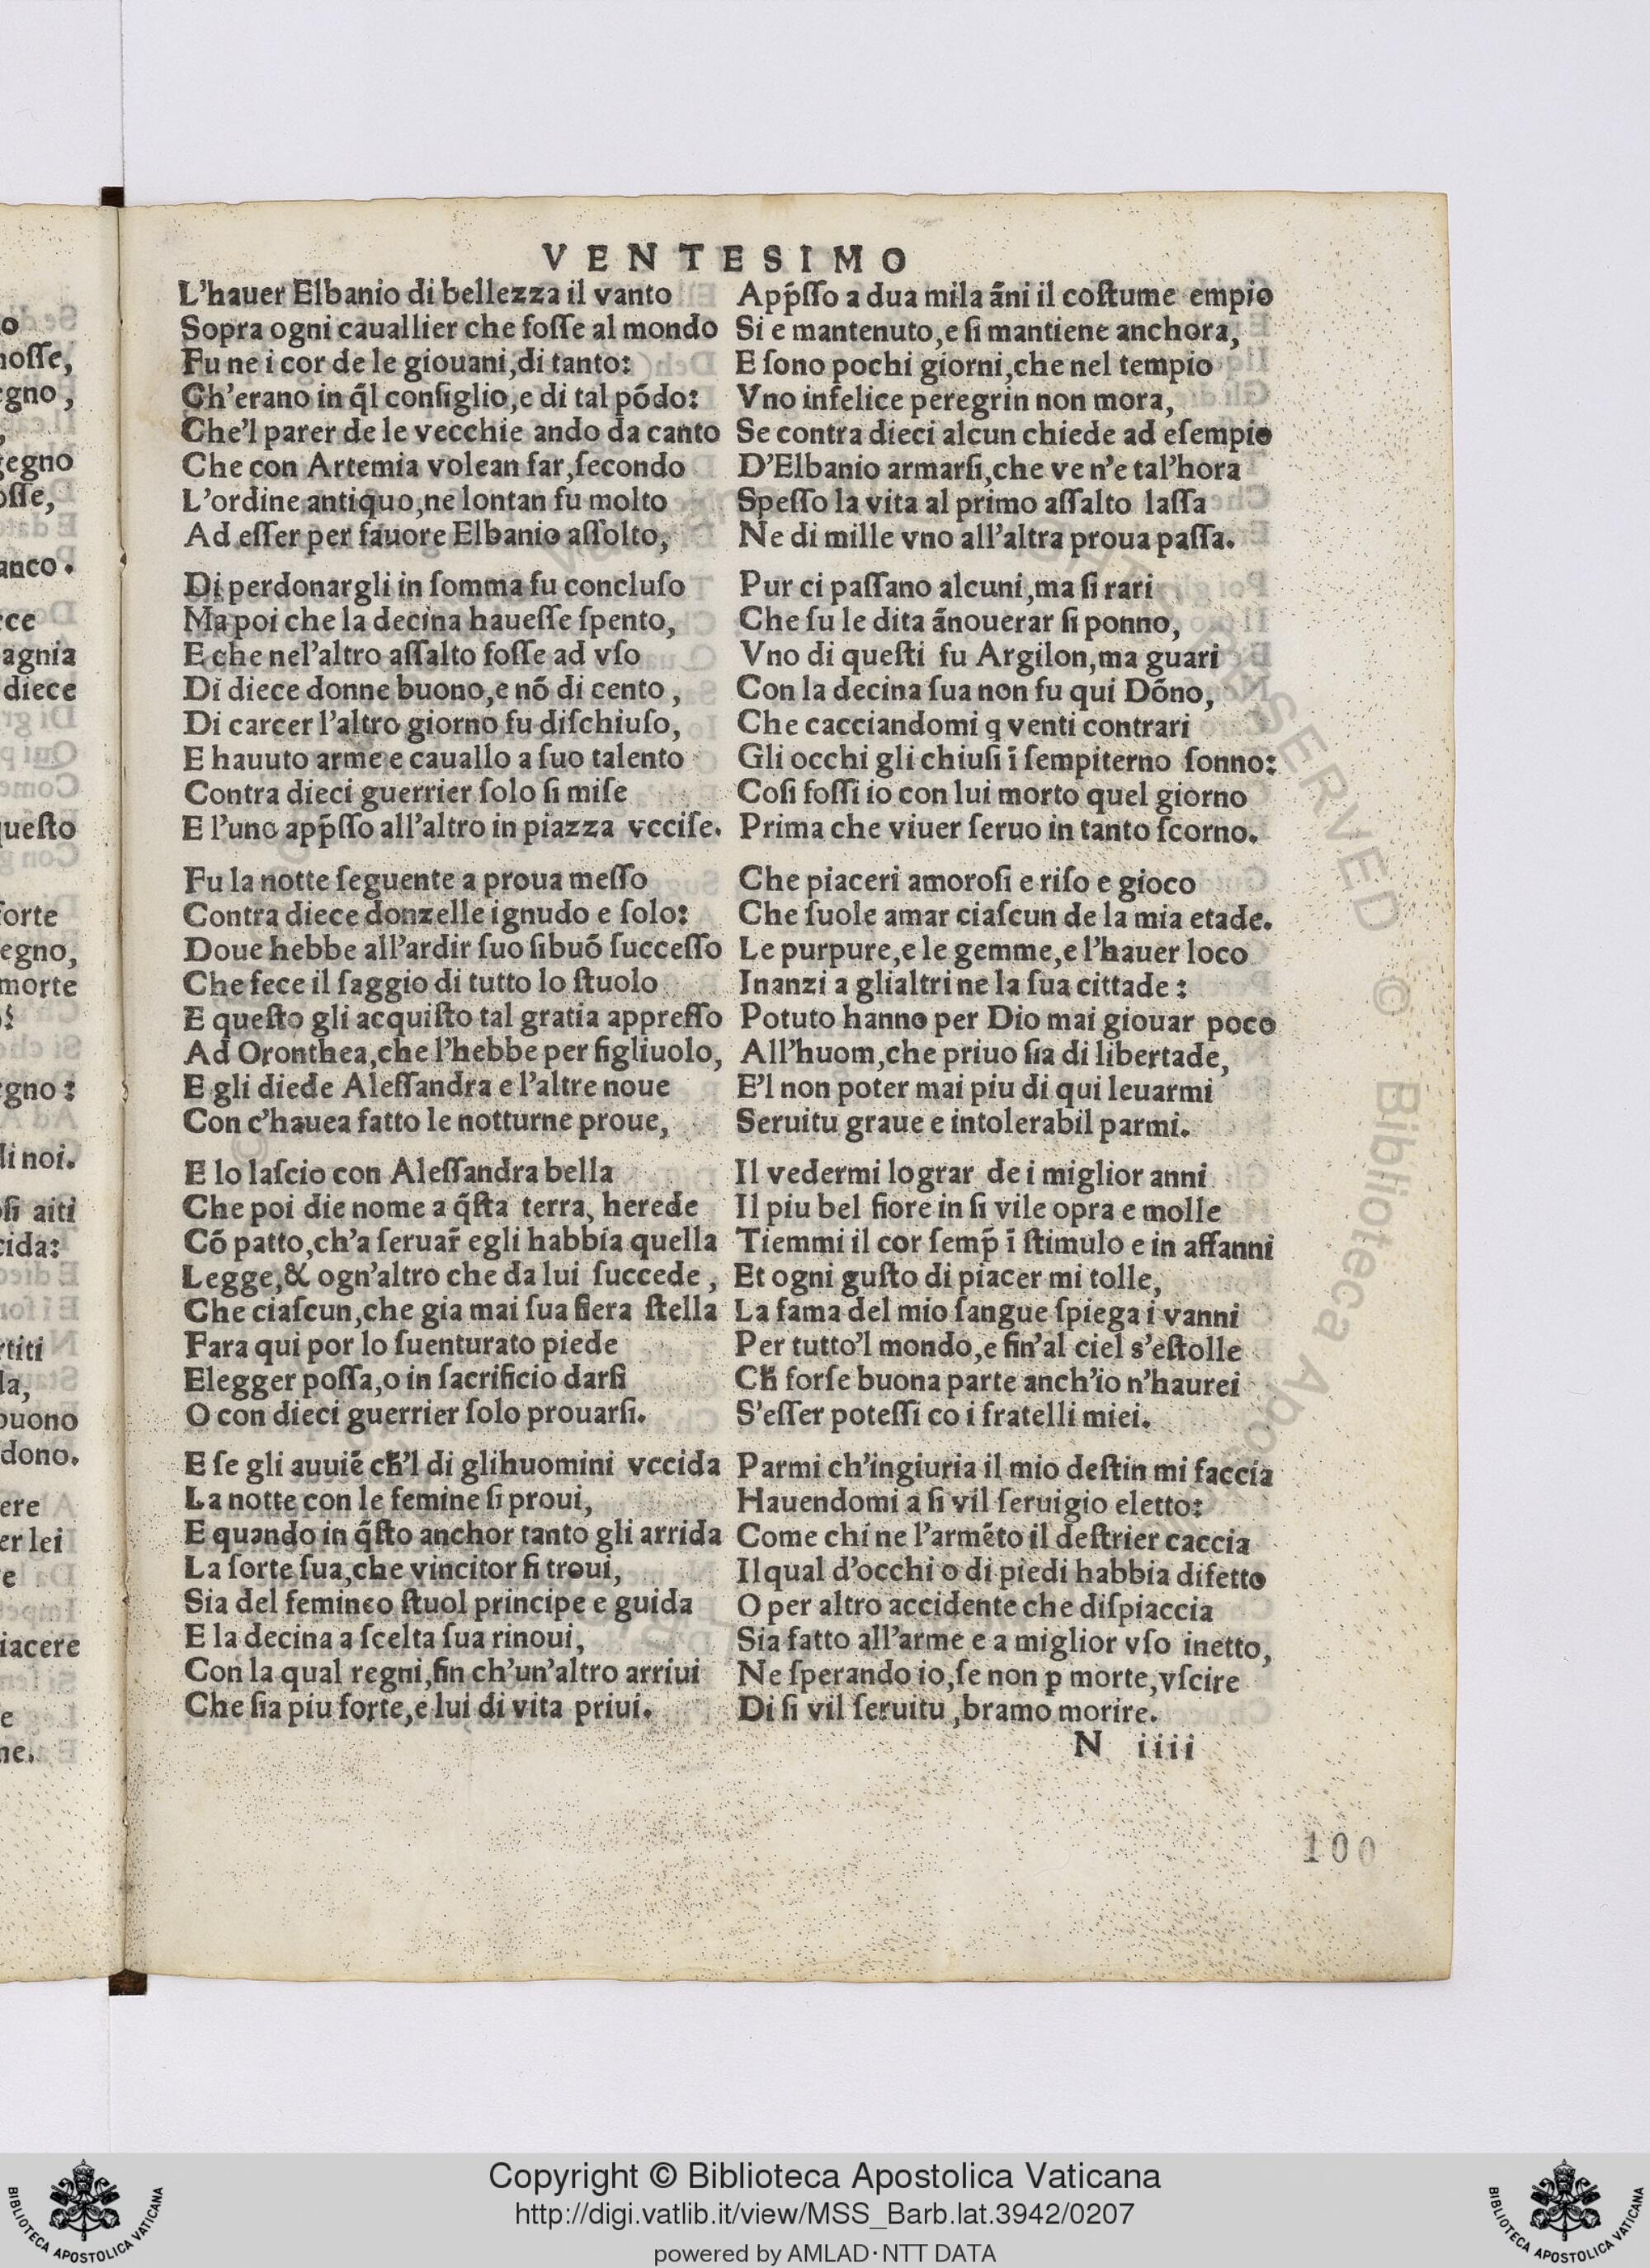 VENTESIMO
L'hauer Elbanio di bellezza il vanto
Sopra ogni cauallier che foſſe al mondo
Fu ne i cor de le giouani,di tanto:
Ch'erano in q̃l conſiglio,e di tal põdo:
Che'l parer de le vecchie ando da canto
Che con Artemia volean far,ſecondo
L'ordine antiquo,ne lontan fu molto
Ad eſſer per fauore Elbanio aſſolto,
Di perdonargli in ſomma fu concluſo
Ma poi che la decina haueſſe ſpento,
E che nel'altro aſſalto foſſe ad vſo
Di diece donne buono,e nõ di cento,
Di carcer l'altro giorno fu diſchiuſo,
E hauuto arme e cauallo a ſuo talento
Contra dieci guerrier ſolo ſi miſe
E l'uno app̃ſſo all'altro in piazza vcciſe.
Fu la notte ſeguente a proua meſſo
Contra diece donzelle ignudo e ſolo:
Doue hebbe all'ardir ſuo ſibuõ ſucceſſo
Che fece il ſaggio di tutto lo ſtuolo
E queſto gli acquiſto tal gratia appreſſo
Ad Oronthea,che l'hebbe per figliuolo,
E gli diede Aleſſandra e l'altre noue
Con c'hauea fatto le notturne proue,
E lo laſcio con Aleſſandra bella
Che poi die nome a q̃ſta terra, herede
Cõ patto,ch'a ſeruar̃ egli habbia quella
Legge,& ogn'altro che da lui ſuccede,
Che ciaſcun,che gia mai ſua fiera ſtella
Fara qui por lo ſuenturato piede
Elegger poſſa,o in ſacrificio darſi
O con dieci guerrier ſolo prouarſi.
E ſe gli auuiẽ ch̃'l di glihuomini vccida
La notte con le femine ſi proui,
E quando in q̃ſto anchor tanto gli arrida
La ſorte ſua,che vincitor ſi troui,
Sia del femineo ſtuol principe e guida
E la decina a ſcelta ſua rinoui,
Con la qual regni,fin ch'un'altro arriui
Che ſia piu forte,e lui di vita priui.
App̃ſſo a dua mila ãni il coſtume empio
Si e mantenuto,e ſi mantiene anchora,
E ſono pochi giorni,che nel tempio
Vno infelice peregrin non mora,
Se contra dieci alcun chiede ad eſempio
D'Elbanio armarſi,che ve n'e tal'hora
Speſſo la vita al primo aſſalto laſſa
Ne di mille vno all'altra proua paſſa.
Pur ci paſſano alcuni,ma ſi rari
Che ſu le dita ãnouerar ſi ponno,
Vno di queſti fu Argilon,ma guari
Con la decina ſua non fu qui Dõno,
Che cacciandomi q venti contrari
Gli occhi gli chiuſi ĩ ſempiterno ſonno:
Coſi foſſi io con lui morto quel giorno
Prima che viuer ſeruo in tanto ſcorno.
Che piaceri amoroſi e riſo e gioco
Che ſuole amar ciaſcun de la mia etade.
Le purpure,e le gemme,e l'hauer loco
Inanzi a glialtri ne la ſua cittade:
Potuto hanno per Dio mai giouar poco
All'huom,che priuo ſia di libertade,
E'l non poter mai piu di qui leuarmi
Seruitu graue e intolerabil parmi.
Il vedermi lograr de i miglior anni
Il piu bel fiore in ſi vile opra e molle
Tiemmi il cor ſemp̃ ĩ ſtimulo e in affanni
Et ogni guſto di piacer mi tolle,
La fama del mio ſangue ſpiega i vanni
Per tutto'l mondo,e fin'al ciel s'eſtolle
Ch̃ forſe buona parte anch'io n'haurei
S'eſſer poteſſi co i fratelli miei.
Parmi ch'ingiuria il mio deſtin mi faccia
Hauendomi a ſi vil ſeruigio eletto:
Come chi ne l'armẽto il deſtrier caccia
Ilqual d'occhi o di piedi habbia difetto
O per altro accidente che diſpiaccia
Sia fatto all'arme e a miglior vſo inetto,
Ne ſperando io,ſe non ꝑ morte,vſcire
Di ſi vil ſeruitu,bramo morire.
N iiii
100
Copyright © Biblioteca Apostolica Vaticana
http://digi.vatlib.it/view/MSS_Barb.lat.3942/0207
powered by AMLAD·NTT DATA
BIBLIOTECA APOSTOLICA VATICANA
BIBLIOTECA APOSTOLICA VATICANA